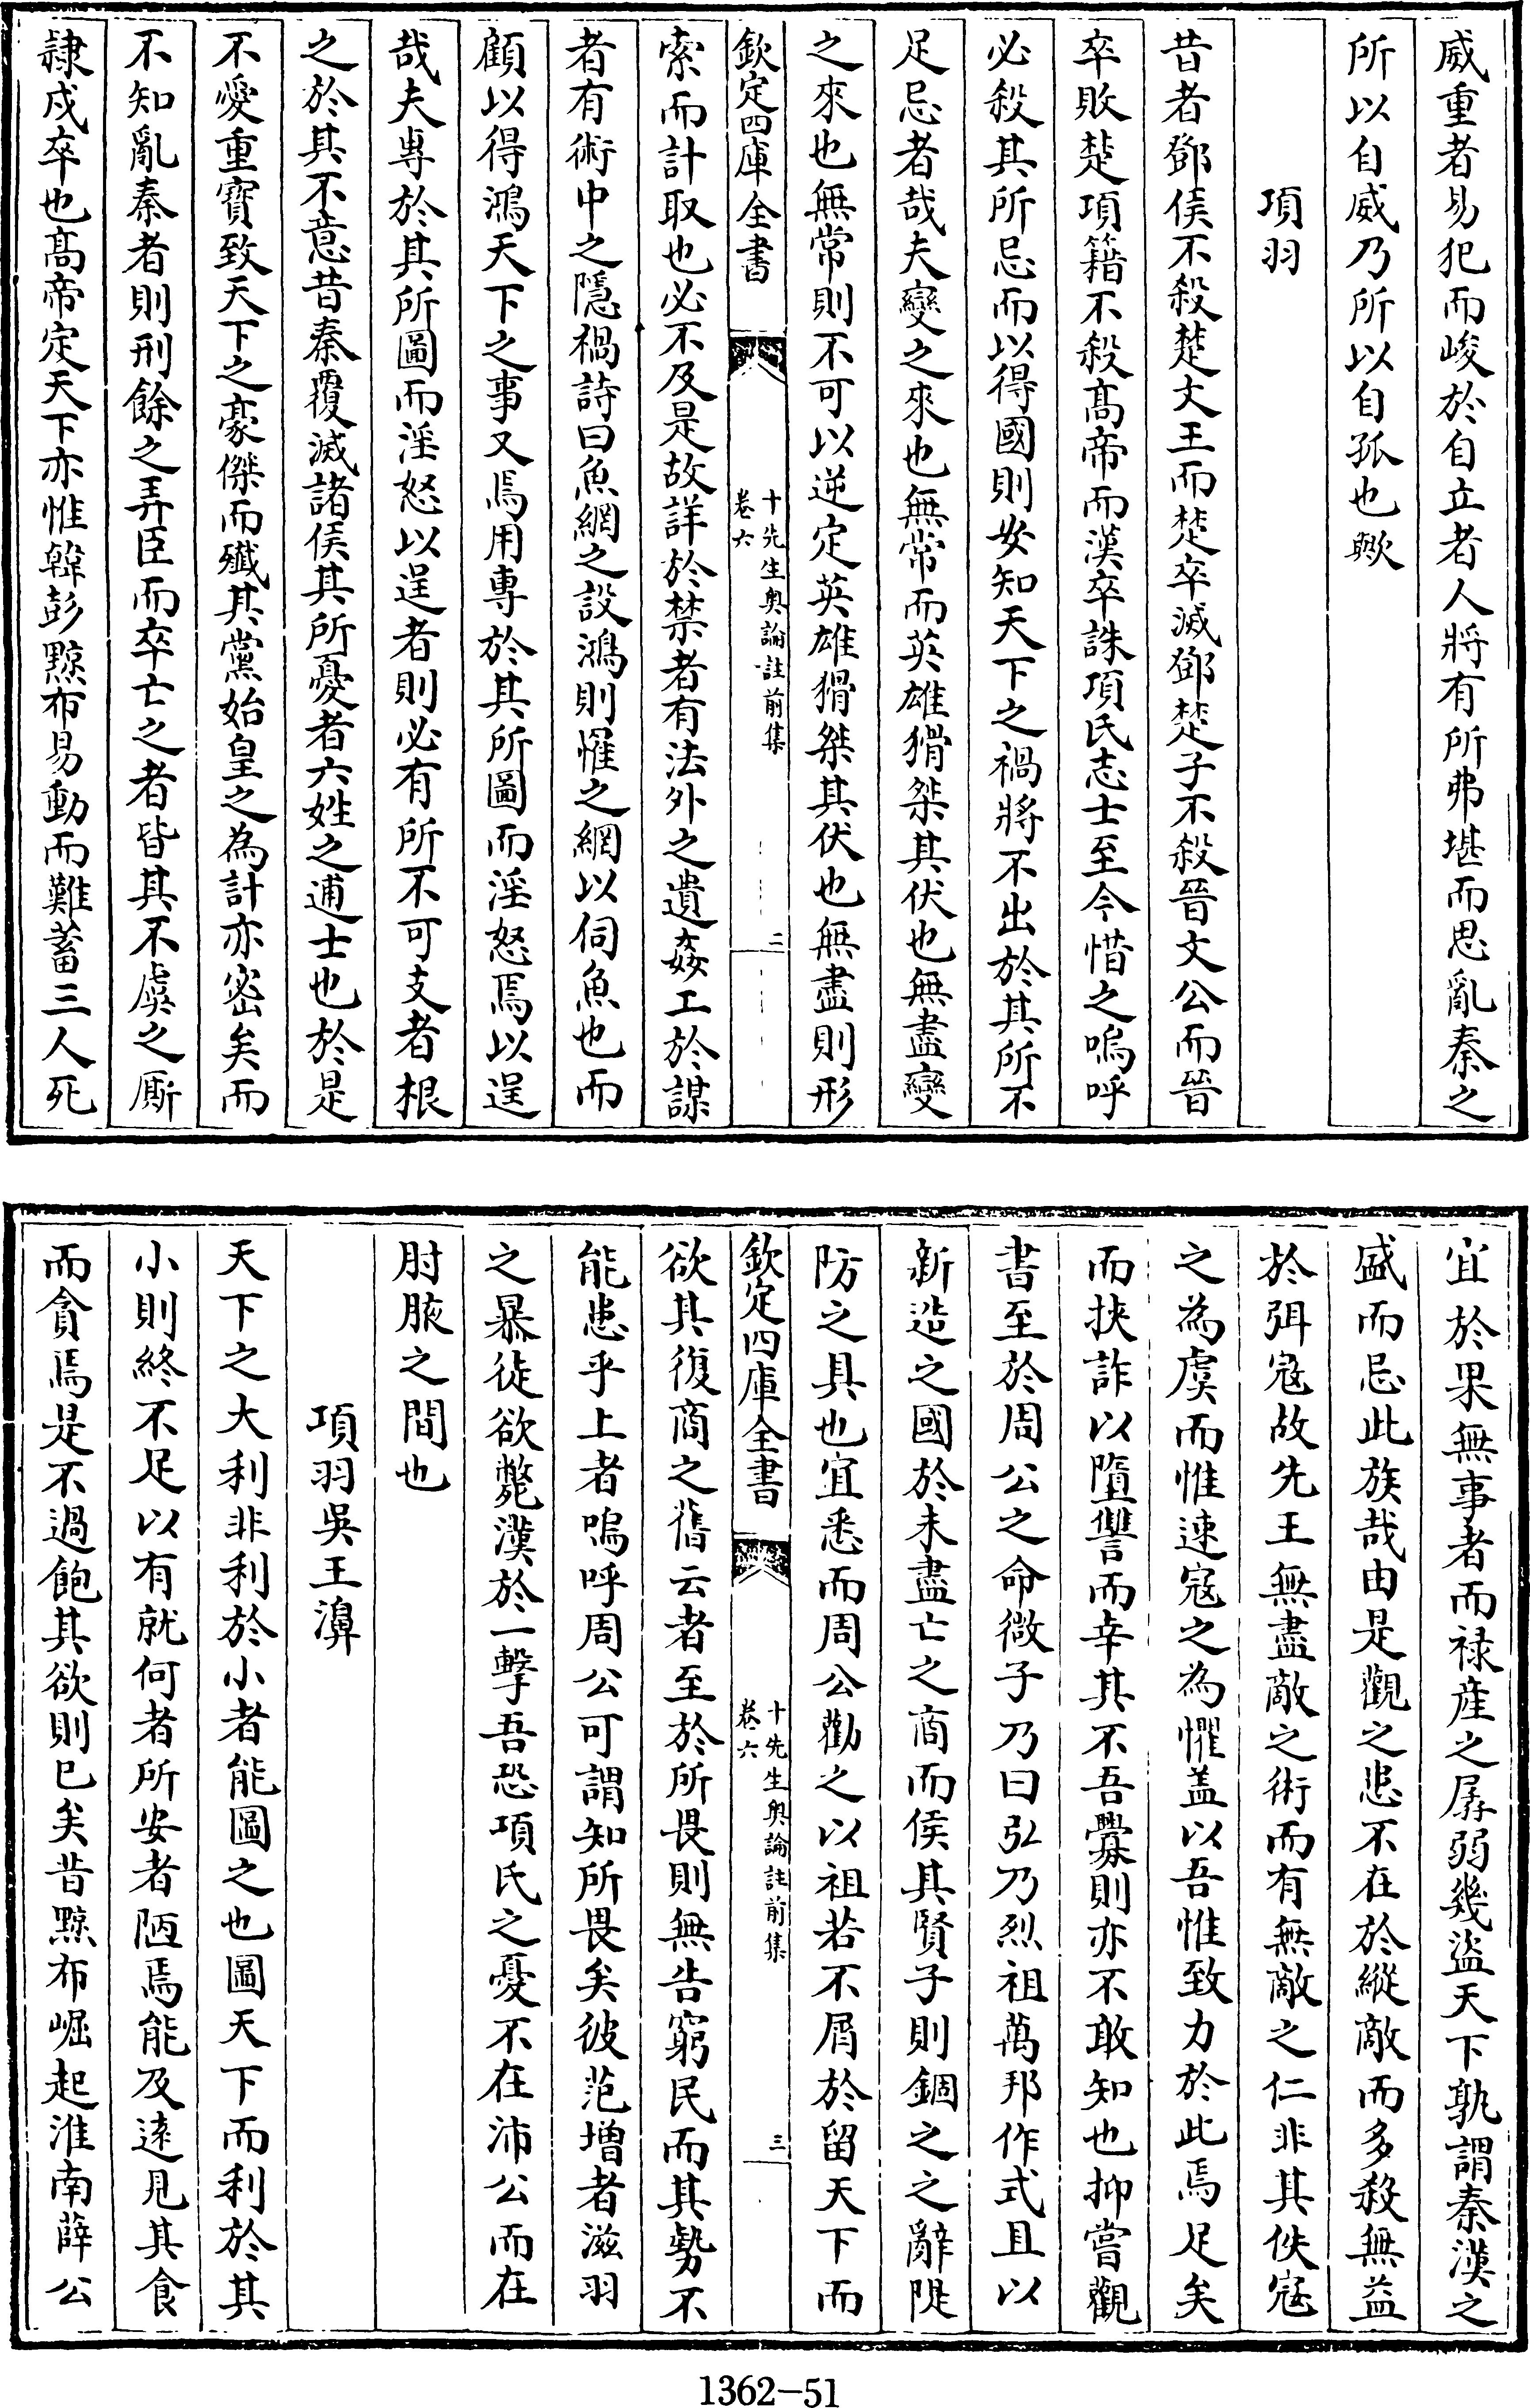 威重者易犯而峻於自立者人將有所弗堪而思亂秦之
所以自威乃所以自孤也歟
項羽
昔者鄧侯不殺楚文王而楚卒滅鄧楚子不殺晉文公而晉
卒敗楚項籍不殺髙帝而漢卒誅項氏志士至今惜之嗚呼
必殺其所忌而以得國則安知天下之禍將不出於其所不
足忌者哉夫變之來也無常而英雄猾桀其伏也無盡變
之來也無常則不可以逆定英雄猾桀其伏也無盡則形
欽定四庫全書
十先生奥論註前集
卷六
二
索而計取也必不及是故詳於禁者有法外之遺姦工於謀
者有術中之隱禍詩曰魚網之設鴻則罹之網以伺魚也而
顧以得鴻天下之事又焉用專於其所圖而淫怒焉以逞
哉夫専於其所圖而淫怒以逞者則必有所不可支者根
之於其不意昔秦覆滅諸侯其所憂者六姓之逋士也於是
不愛重寳致天下之豪傑而殲其黨始皇之為計亦宻矣而
不知亂秦者則刑餘之弄臣而卒亡之者皆其不虞之厮
隷戍卒也髙帝定天下亦惟韓彭黥布易動而難蓄三人死
宜於果無事者而禄産之孱弱幾盜天下孰謂秦漢之
盛而忌此族哉由是觀之患不在於縱敵而多殺無益
於弭宼故先王無盡敵之術而有無敵之仁非其佚宼
之為虞而惟速宼之為懼盖以吾惟致力於此焉足矣
而挾詐以墮讐而幸其不吾釁則亦不敢知也抑嘗觀
書至於周公之命微子乃曰弘乃烈祖萬邦作式且以
新造之國於未盡亡之商而侯其賢子則錮之之辭隄
防之具也宜悉而周公勸之以祖若不屑於留天下而
欽定四庫全書
十先生奥論註前集
卷六
三
欲其復商之舊云者至於所畏則無告窮民而其勢不
能患乎上者嗚呼周公可謂知所畏矣彼范増者滋羽
之暴徒欲斃漢於一擊吾恐項氏之憂不在沛公而在
肘腋之間也
項羽吳王濞
天下之大利非利於小者能圖之也圖天下而利於其
小則終不足以有就何者所安者陋焉能及逺見其食
而貪焉是不過飽其欲則已矣昔黥布崛起淮南薛公
1362-51